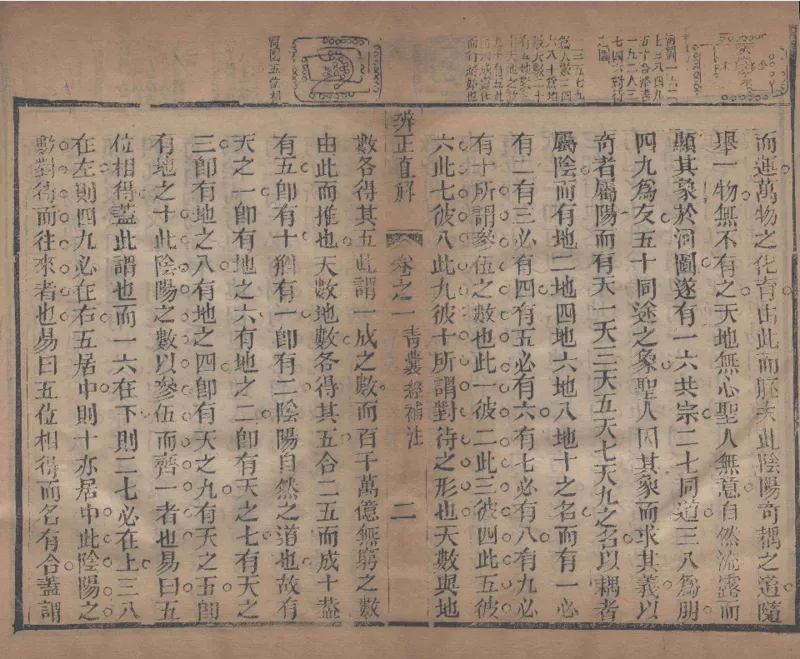 一三五七九
六八十爲地
而行鬼神也
河圖五位相
而運萬物之化育由此而胚夫此陰陽奇耦之道隨
舉一物無不有之天地無心聖人無意自然流露而
顯其象於河圖遂有一六共宗二七同道三八爲朋
四九爲友五十同途之象聖人因其象而求其義以
奇者屬陽而有天一天三天五天七天九之名以耦者
屬陰而有地二地四地六地八地十之名而有一必
有二有三必有四有五必有六有七必有八有九必
有十所謂參伍之數也此一彼二此三彼四此五彼
六此七彼八此九彼十所謂對待之形也天數與地
辨正直解 卷之一 青囊經補注 二
數各得其五此謂一成之數而百千萬億無窮之數
由此而推也天數地數各得其五合二五而成十蓋
有五卽有十猶有一卽有二陰陽自然之道也故有
天之一卽有地之六有地之二卽有天之七有天之
三卽有地之八有地之四卽有天之九有天之五卽
有地之十此陰陽之數以參伍而齊一者也易曰五
位相得蓋此謂也而一六在下則二七必在上三八
在左則四九必在右五居中則十亦居中此陰陽之
數對待而往來者也易曰五位相得而各有合蓋謂